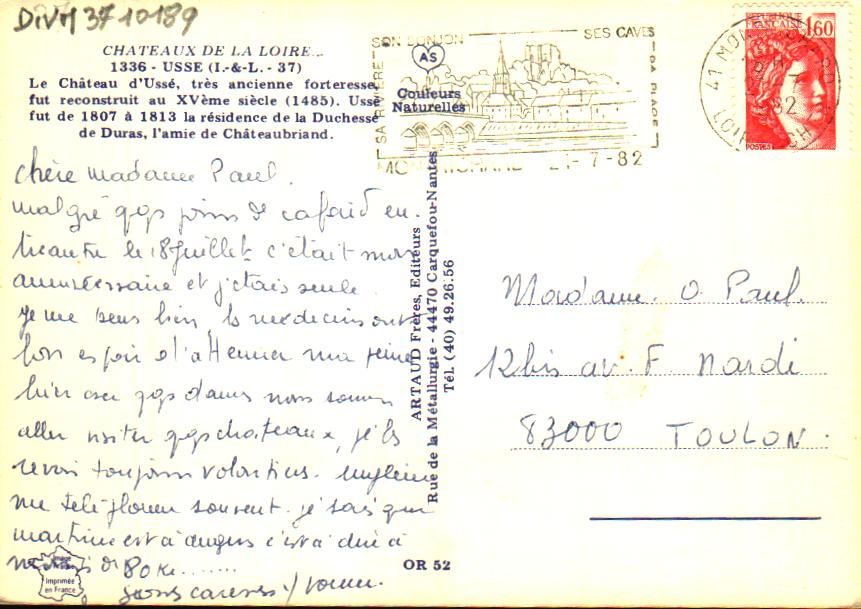 DIVM 37 10189
CHATEAUX DE LA LOIRE...
1336 - USSE (I.-&-L. - 37)
Le Château d'Ussé, très ancienne forteresse,
fut reconstruit au XVème siècle (1485). Ussé
fut de 1807 à 1813 la résidence de la Duchesse
de Duras, l'amie de Châteaubriand.
SON DONJON
SES CAVES
SA RIVIERE
SA PLAGE
AS
Couleurs
Naturelles
21-7-82
REPUBLIQUE FRANCAISE
1,60
POSTES
chère madame Paul.
malgré qqs jours de cafard
le 18 juillet c'était mon
anniversaire et j'étais seule.
je me sens bien, les médecins ont
bon espoir d'
hier avec qqs dames nous sommes
aller visiter qqs chateaux, je les
revois toujours volontiers.
me téléphoner souvent. je sais que
martine est à angers c'est à dire à
80 K........
ARTAUD Frères, Editeurs
Rue de la Métallurgie - 44470 Carquefou-Nantes
Tél. (40) 49.26.56
Madame O. Paul.
12bis av. F. Nardi
83000 TOULON.
Imprimée
en France
OR 52